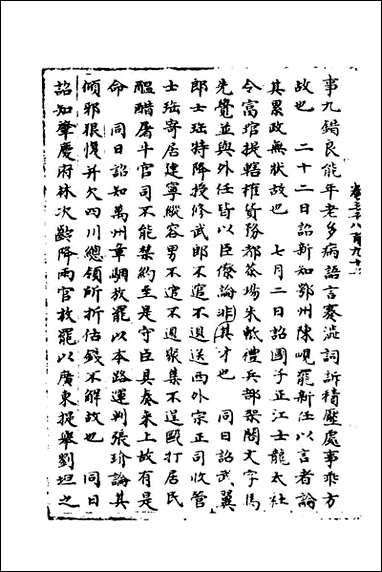 事九錯良能年老多病語言蹇澁詞訴積壓處事乖方
故也　二十二日詔新知鄂州陳峴罷新任以言者論
其累政無狀故也　七月二日詔國子正江士龍太社
令富琯提轄榷貨務都茶場朱軧禮兵部架閣文字馬
先覺並與外任皆以臣僚論非其才也　同日詔武翼
郎士珸特降授修武郎不㣫不退送西外宗正司收管
士珸寄居建寧縱容男不㣫不退聚集不逞毆打居民
醖醋屠斗官司不能禁約至是守臣具奏來上故有是
命　同日詔知萬州章騆放罷以本路運判張玠論其
傾邪狠愎并欠四川總領所折估錢不解故也　同日
詔知肇慶府林次齡降兩官放罷以廣東提舉劉坦之